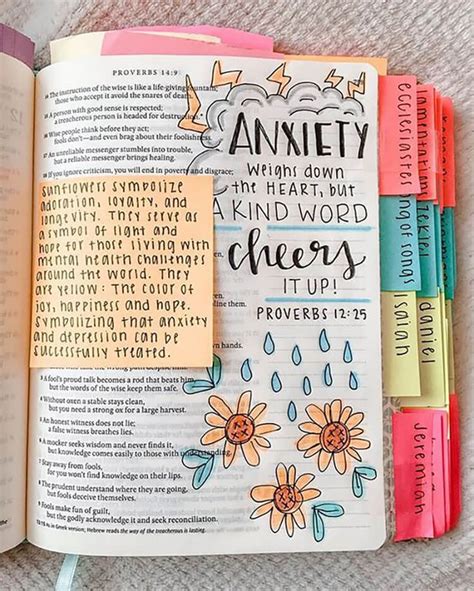 PROVERBS 14:9
14 The instruction of the wise is like a life-giving fountain;
those who accept it avoid the snares of death.
15 A person with good sense is respected;
a treacherous person is headed for destruction.*
16 Wise people think before they act;
fools don't—and even brag about their foolishness.
17 An unreliable messenger stumbles into trouble,
but a reliable messenger brings healing.
18 If you ignore criticism, you will end in poverty and disgrace;
Sunflowers symbolize
adoration, loyalty, and
longevity. They serve as
a symbol of light and
hope for those living with
mental health challenges
around the world. They
are yellow: The color of
joy, happiness and hope.
Symbolizing that anxiety
and depression can be
successfully treated.
line them.
wrong;
3 A fool's proud talk becomes a rod that beats him,
but the words of the wise keep them safe.
4 Without oxen a stable stays clean,
but you need a strong ox for a large harvest.
5 An honest witness does not lie;
a false witness breathes lies.
6 A mocker seeks wisdom and never finds it,
but knowledge comes easily to those with understanding.
7 Stay away from fools,
for you won't find knowledge on their lips.
8 The prudent understand where they are going,
but fools deceive themselves.
9 Fools make fun of guilt,
but the godly acknowledge it and seek reconciliation.
13:15 As in Greek version; Hebrew reads the way of the treacherous is lasting.
ANXIETY
WEIGHS DOWN
THE HEART, BUT
A KIND WORD
cheers
IT UP!
PROVERBS 12:25
ecclesiastes
song of songs
Isaiah
Jeremiah
lamentations
ezekiel
daniel